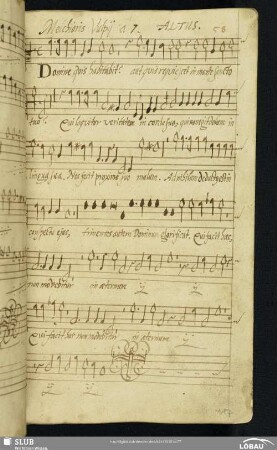 Melchioris Vulpij a 7. ALTUS. 58
Domine quis habitabit? aut quis requiescet in monte sancto
tuo? Qui loquitur veritatem in corde suo, qui non egit dolum in
lingua sua, Nec fecit proximo suo malum. Ad nihilum deductus est in
conspectu ejus, timentes autem Dominum glorificat. Qui facit haec
non movebitur in aeternum ij ij
Qui facit haec non movebitur in aeternum ij
ij ij
SLUB
Wir führen Wissen.
LÖBAU